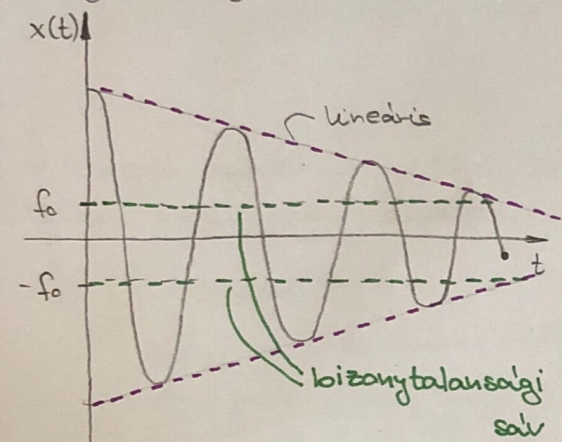 x(t)
lineáris
f₀
t
-f₀
bizonytalansági
sáv